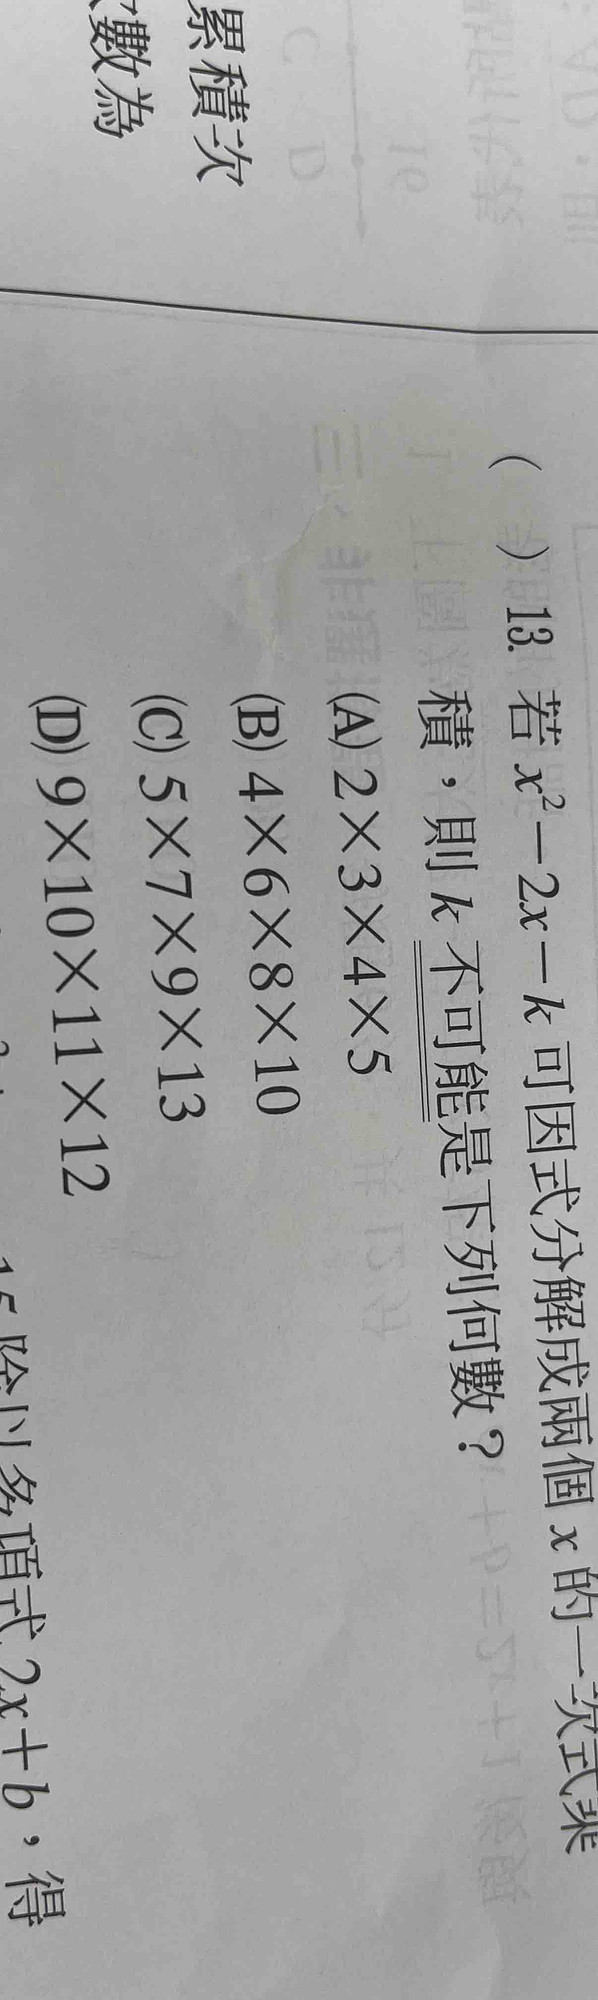 累積次
數為
( ) 13. 若 x²－2x－k 可因式分解成兩個 x 的一次式乘
積，則 k 不可能是下列何數？
(A) 2×3×4×5
(B) 4×6×8×10
(C) 5×7×9×13
(D) 9×10×11×12
15. 除以多項式 2x＋b，得